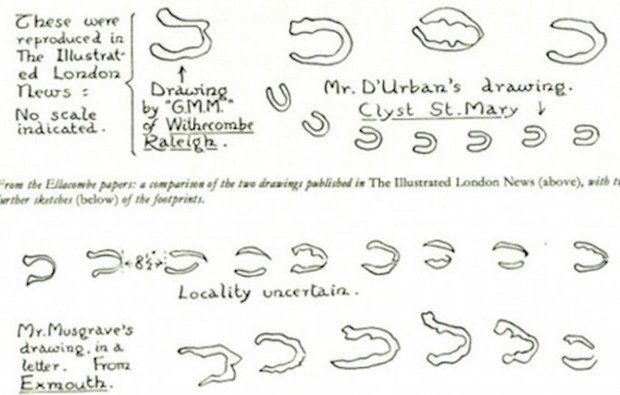 These were
reproduced in
The Illustrat-
ed London
News :
No scale
indicated.
Drawing
by "G.M.M."
of Withecombe
Raleigh.
Mr. D'Urban's drawing.
Clyst St. Mary
From the Ellacombe papers: a comparison of the two drawings published in The Illustrated London News (above), with
further sketches (below) of the footprints.
8½
Locality uncertain.
Mr. Musgrave's
drawing, in a
letter. From
Exmouth.